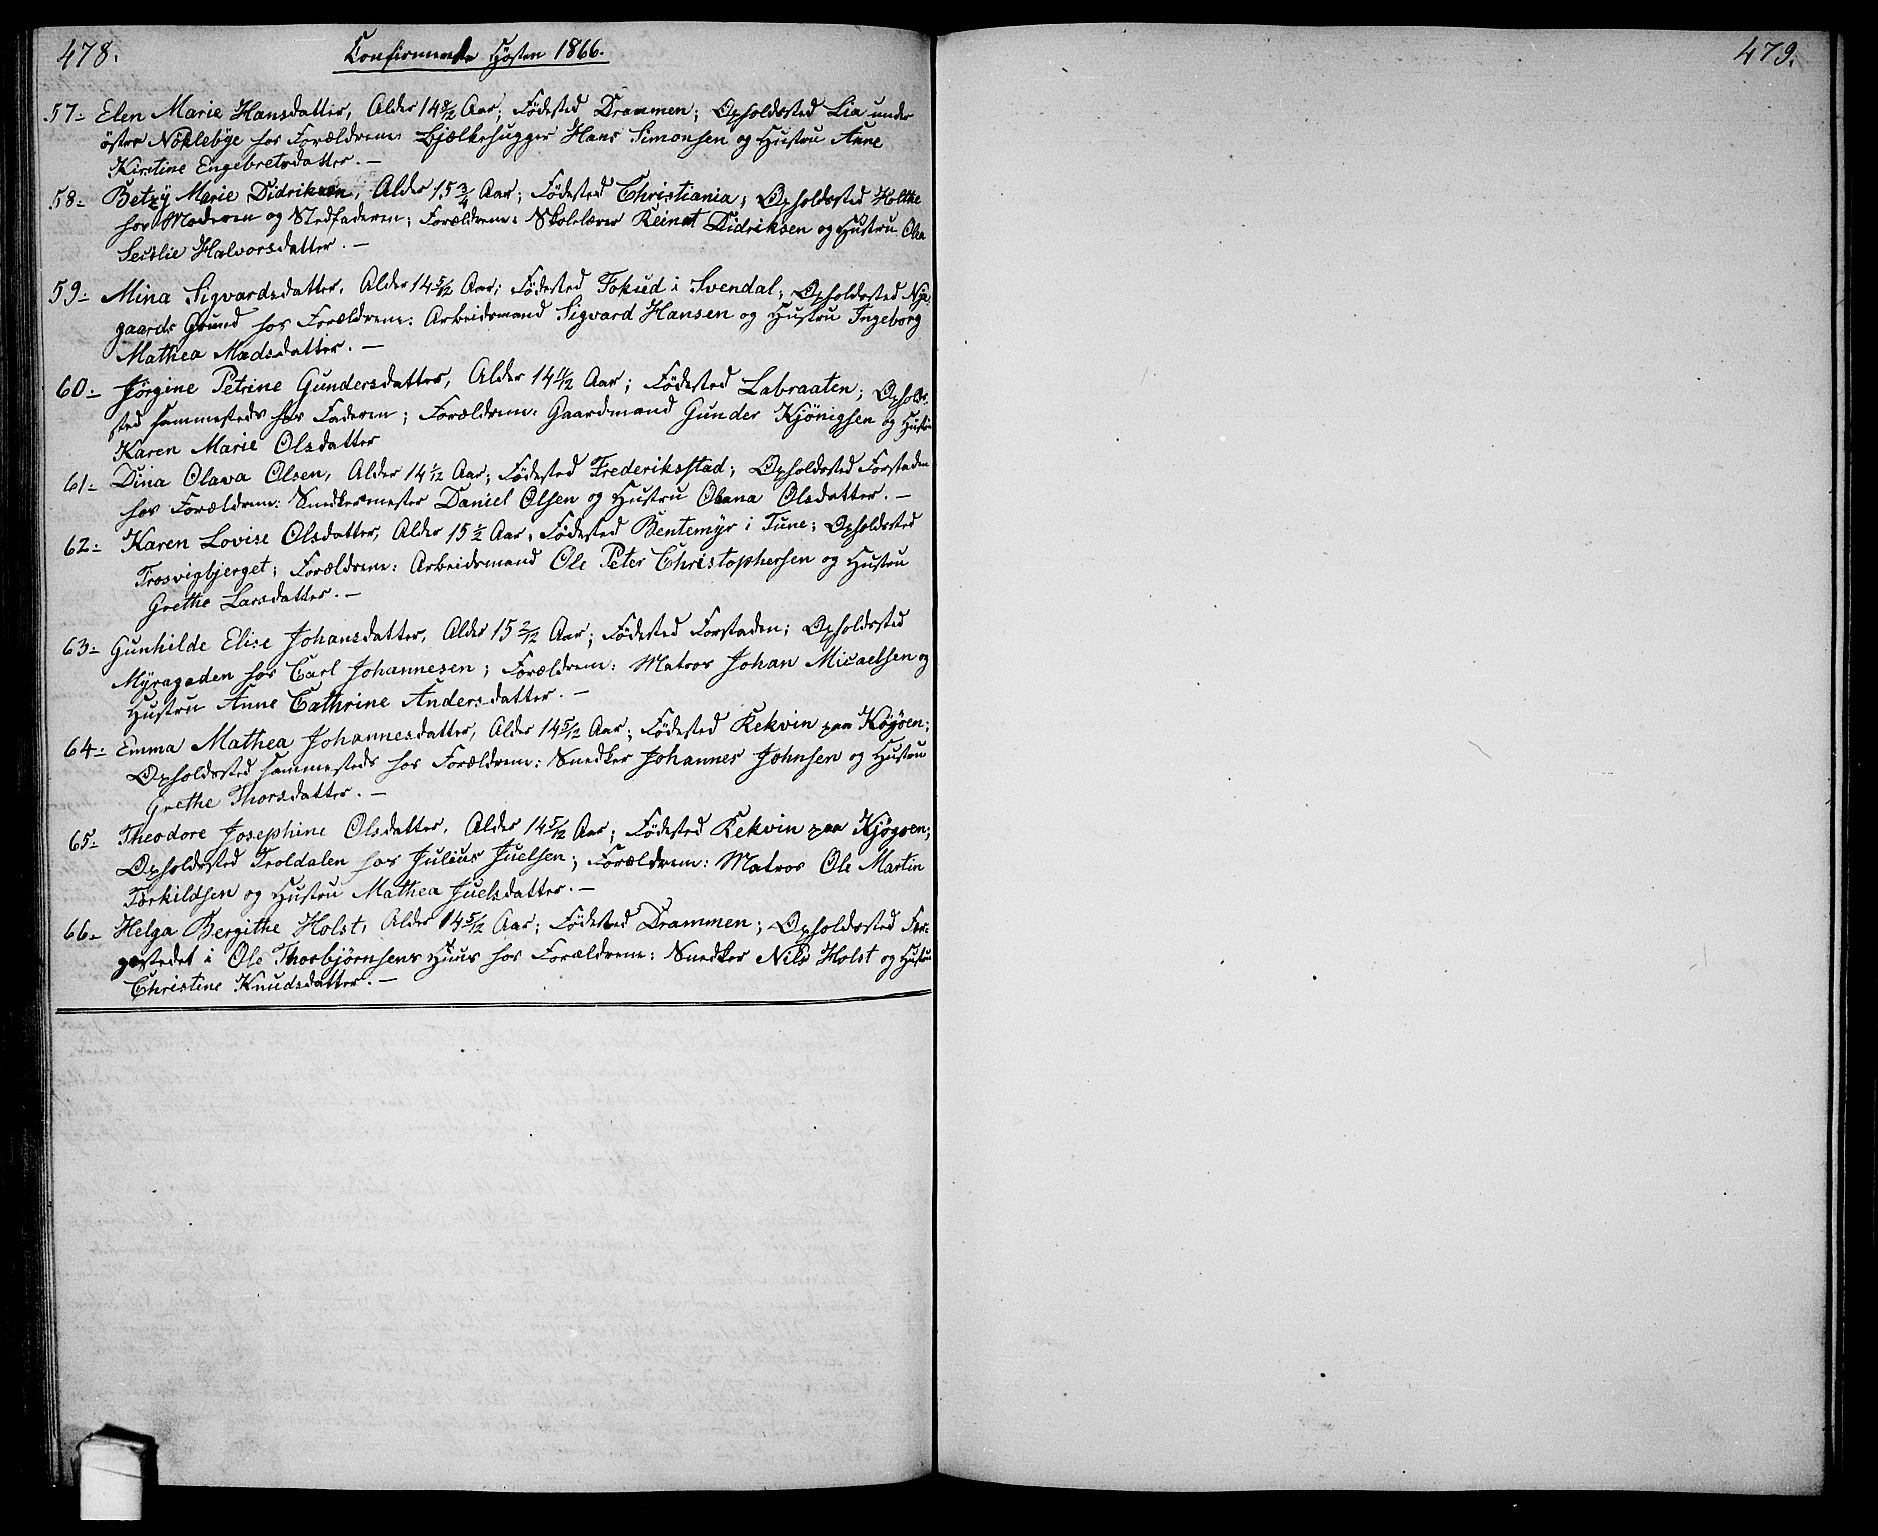 478.
Confirmerede Høsten 1866.
57- Elen Marie Hansdatter, Alder 14 8/12 Aar; Fødested Drammen; Opholdssted Lia under
østre Nøklebye hos Forældrene: Bjælkehugger Hans Simonsen og Hustru Anne
Kirstine Engebretsdatter. —
58- Betzy Marie Didriksen, Alder 15 3/4 Aar; Fødested Christiania; Opholdssted Holthe
hos Moderen og Stedfaderen; Forældrene: Skolelærer Reinat Didriksen og Hustru Olea
Secilie Halvorsdatter. —
59- Mina Sigvardsdatter, Alder 14 5/12 Aar; Fødested Fokud i Svendal; Opholdssted Nye-
gaards Grund hos Forældrene: Arbeidsmand Sigvard Hansen og Hustru Ingeborg
Mathea Madsdatter. —
60- Jörgine Petrine Gundersdatter, Alder 14 11/12 Aar; Fødested Labraaten; Opholds-
sted sammesteds hos Faderen; Forældrene: Gaardmand Gunder Kjönigsen og Hustru
Karen Marie Olsdatter
61- Dina Olava Olsen, Alder 14 1/12 Aar; Fødested Frederiksstad; Opholdssted Forstaden
hos Forældrene: Snedkermester Daniel Olsen og Hustru Oleana Olsdatter. —
62- Karen Lovise Olsdatter, Alder 15 1/2 Aar; Fødested Bentemyr i Tune; Opholdssted
Trosvigbjerget; Forældrene: Arbeidsmand Ole Peter Christophersen og Hustru
Grethe Larsdatter. —
63- Gunhilde Elise Johansdatter, Alder 15 2/12 Aar; Fødested Forstaden; Opholdssted
Myragaden hos Carl Johannesen; Forældrene: Matros Johan Micaelsen og
Hustru Anne Cathrine Andersdatter. —
64- Emma Mathea Johannesdatter, Alder 14 5/12 Aar; Fødested Rekvin paa Køgöen;
Opholdssted sammesteds hos Forældrene: Snedker Johannes Johnsen og Hustru
Grethe Thorsdatter. —
65- Theodore Josephine Olsdatter, Alder 14 5/12 Aar; Fødested Rekvin paa Kjøgöen;
Opholdssted Troldalen hos Julius Juelsen; Forældrene: Matros Ole Martin
Torkildsen og Hustru Mathea Juelsdatter. —
66- Helga Bergithe Holst, Alder 14 5/12 Aar; Fødested Drammen; Opholdssted Fær-
gestedet i Ole Thorbjörnsens Huus hos Forældrene: Snedker Nils Holst og Hustru
Christine Knudsdatter. —
479.